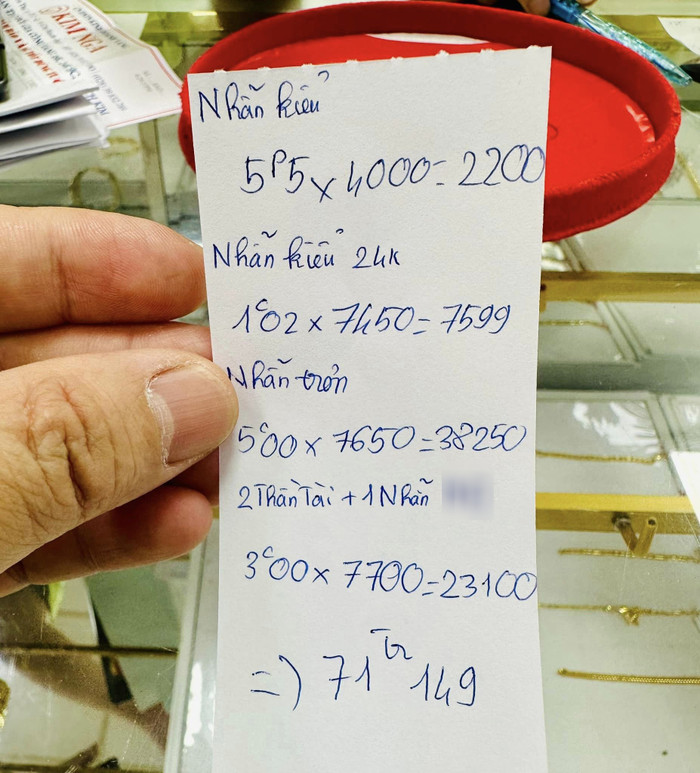 KIM NGA
Nhẫn kiểu
5P5 x 4000 = 2200
Nhẫn kiểu 24k
1c02 x 7450 = 7599
Nhẫn trơn
5c00 x 7650 = 38250
2 Thần Tài + 1 Nhẫn
3c00 x 7700 = 23100
=) 71tr 149